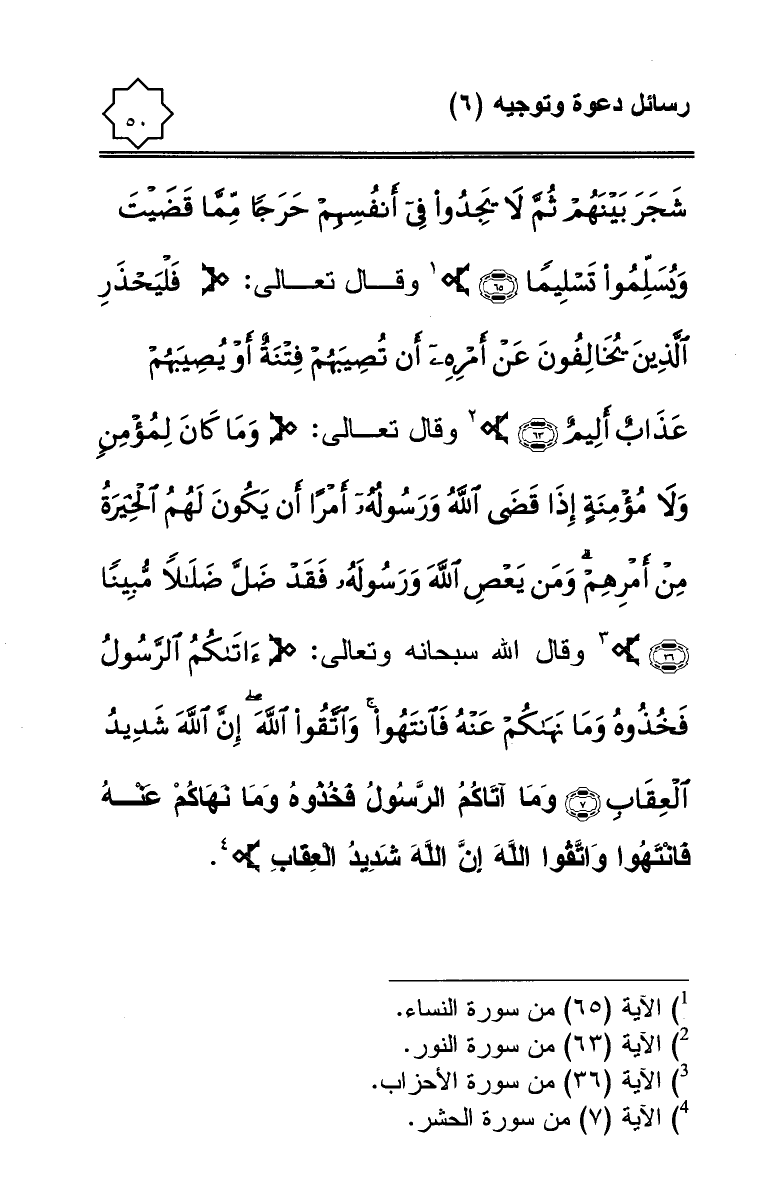 رسائل دعوة وتوجيه (٦)
٥٠
شَجَرَ بَيْنَهُمْ ثُمَّ لَا يَجِدُوا۟ فِىٓ أَنفُسِهِمْ حَرَجًا مِّمَّا قَضَيْتَ
وَيُسَلِّمُوا۟ تَسْلِيمًا ٦٥ ﴾ ١ وقـــال تعـــالى: ﴿ فَلْيَحْذَرِ
ٱلَّذِينَ يُخَالِفُونَ عَنْ أَمْرِهِۦٓ أَن تُصِيبَهُمْ فِتْنَةٌ أَوْ يُصِيبَهُمْ
عَذَابٌ أَلِيمٌ ٦٣ ﴾ ٢ وقال تعـــالى: ﴿ وَمَا كَانَ لِمُؤْمِنٍ
وَلَا مُؤْمِنَةٍ إِذَا قَضَى ٱللَّهُ وَرَسُولُهُۥٓ أَمْرًا أَن يَكُونَ لَهُمُ ٱلْخِيَرَةُ
مِنْ أَمْرِهِمْ ۗ وَمَن يَعْصِ ٱللَّهَ وَرَسُولَهُۥ فَقَدْ ضَلَّ ضَلَـٰلًا مُّبِينًا
٣٦ ﴾ ٣ وقال الله سبحانه وتعالى: ﴿ ءَاتَىٰكُمُ ٱلرَّسُولُ
فَخُذُوهُ وَمَا نَهَىٰكُمْ عَنْهُ فَٱنتَهُوا۟ ۚ وَٱتَّقُوا۟ ٱللَّهَ ۖ إِنَّ ٱللَّهَ شَدِيدُ
ٱلْعِقَابِ ٧ وَمَا آتَاكُمُ الرَّسُولُ فَخُذُوهُ وَمَا نَهَاكُمْ عَنْـــهُ
فَانْتَهُوا وَاتَّقُوا اللَّهَ إِنَّ اللَّهَ شَدِيدُ الْعِقَابِ ﴾ ٤.
1) الآية (٦٥) من سورة النساء.
2) الآية (٦٣) من سورة النور.
3) الآية (٣٦) من سورة الأحزاب.
4) الآية (٧) من سورة الحشر.